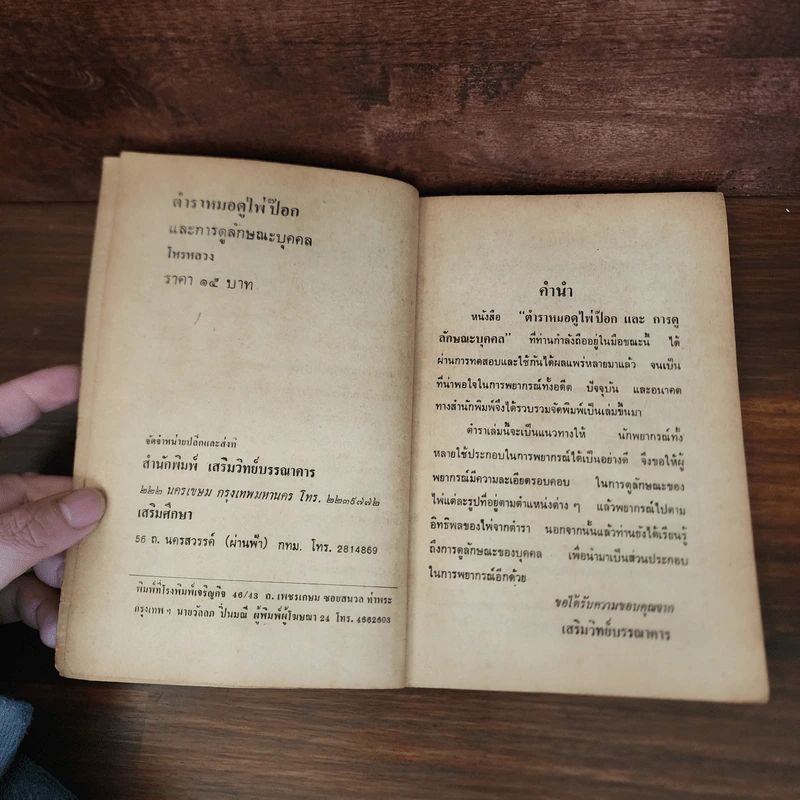 ตำราหมอดูไพ่ป๊อก
และการดูลักษณะบุคคล
โหรหลวง
ราคา ๑๕ บาท
จัดจำหน่ายปลีกและส่งที่
สำนักพิมพ์ เสริมวิทย์บรรณาคาร
๒๒๒ นครเขษม กรุงเทพมหานคร โทร. ๒๒๓๕๗๗๒
เสริมศึกษา
56 ถ. นครสวรรค์ (ผ่านฟ้า) กทม. โทร. 2814869
พิมพ์ที่โรงพิมพ์เจริญกิจ 46/43 ถ. เพชรเกษม ซอยสนวล ท่าพระ
กรุงเทพ ฯ นายวัลลภ ปิ่นมณี ผู้พิมพ์ผู้โฆษณา 24 โทร. 4662603
คำนำ
หนังสือ "ตำราหมอดูไพ่ป๊อก และ การดู
ลักษณะบุคคล" ที่ท่านกำลังถืออยู่ในมือขณะนี้ ได้
ผ่านการทดสอบและใช้กันได้ผลแพร่หลายมาแล้ว จนเป็น
ที่น่าพอใจในการพยากรณ์ทั้งอดีต ปัจจุบัน และอนาคต
ทางสำนักพิมพ์จึงได้รวบรวมจัดพิมพ์เป็นเล่มขึ้นมา
ตำราเล่มนี้จะเป็นแนวทางให้ นักพยากรณ์ทั้ง
หลายใช้ประกอบในการพยากรณ์ได้เป็นอย่างดี จึงขอให้ผู้
พยากรณ์มีความละเอียดรอบคอบ ในการดูลักษณะของ
ไพ่แต่ละรูปที่อยู่ตามตำแหน่งต่าง ๆ แล้วพยากรณ์ไปตาม
อิทธิพลของไพ่จากตำรา นอกจากนั้นแล้วท่านยังได้เรียนรู้
ถึงการดูลักษณะของบุคคล เพื่อนำมาเป็นส่วนประกอบ
ในการพยากรณ์อีกด้วย
ขอได้รับความขอบคุณจาก
เสริมวิทย์บรรณาคาร